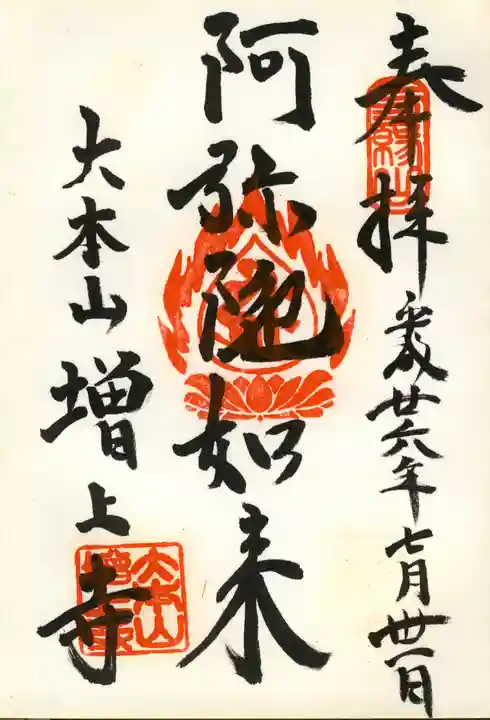 奉拝 平成廿六年七月卅一日
阿弥陀如来
大本山増上寺
三縁山
大本山増上寺